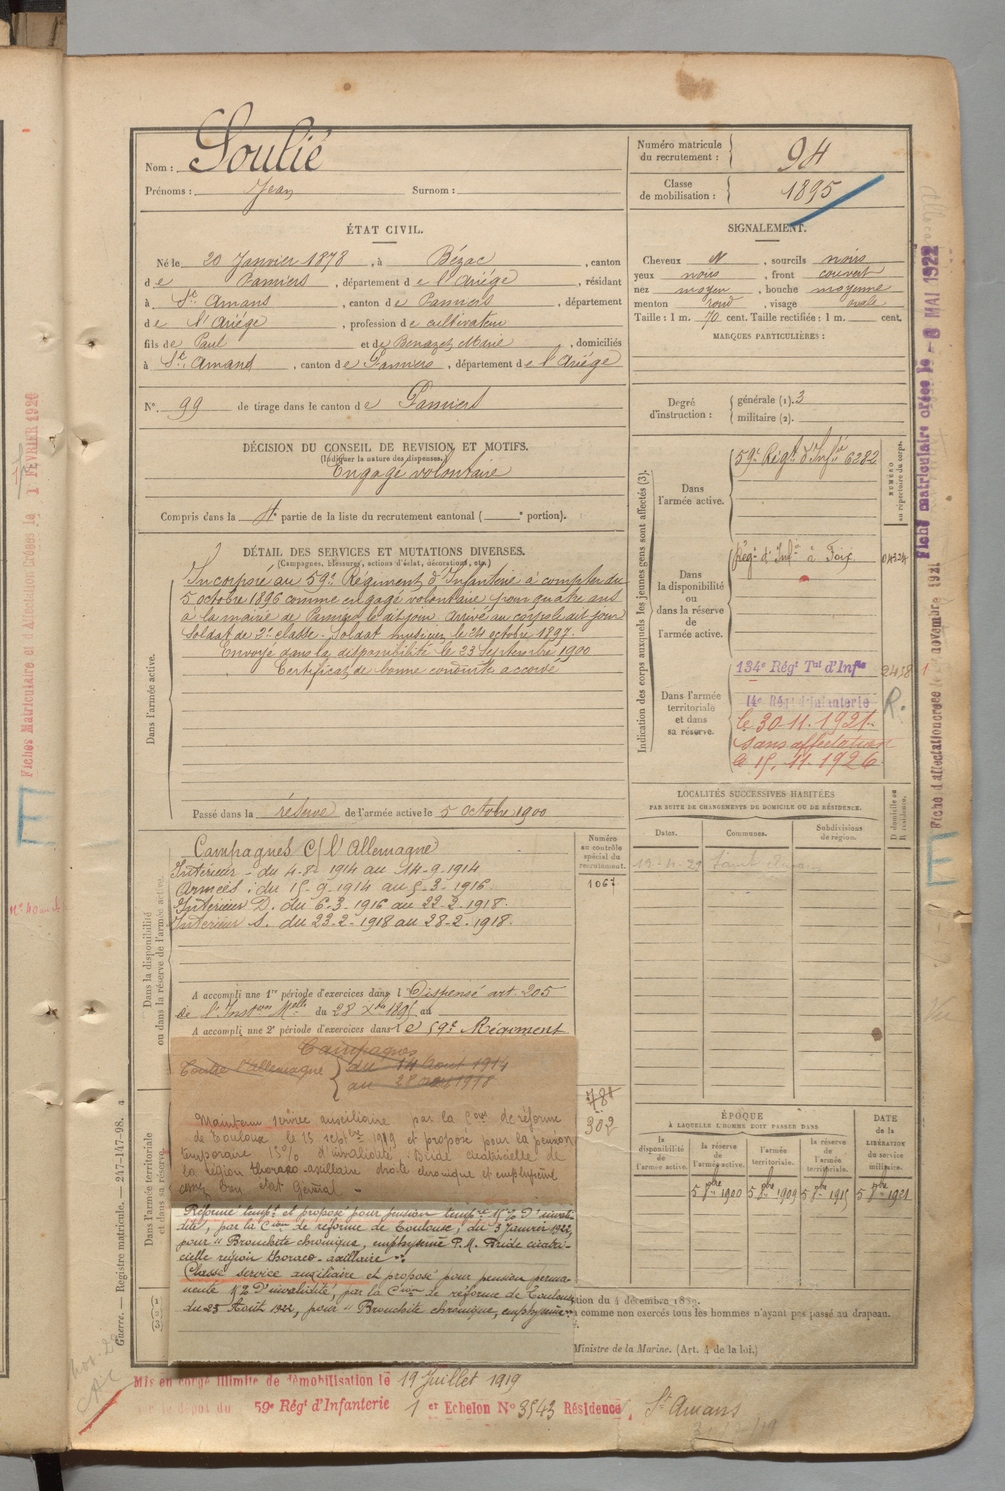 Nom : Soulié
Prénoms : Jean Surnom :
Numéro matricule du recrutement : 94
Classe de mobilisation : 1895
ÉTAT CIVIL.
Né le 20 Janvier 1878, à Bézac, canton
de Pamiers, département de l'Ariége, résidant
à St Amans, canton de Pamiers, département
de l'Ariége, profession de cultivateur
fils de Paul et de Benazet Marie, domiciliés
à St Amand, canton de Pamiers, département de l'Ariége
N° 99 de tirage dans le canton de Pamiers
SIGNALEMENT.
Cheveux N, sourcils noirs
yeux noirs, front couvert
nez moyen, bouche moyenne
menton rond, visage ovale
Taille : 1 m. 70 cent. Taille rectifiée : 1 m. cent.
MARQUES PARTICULIÈRES :
Degré d'instruction : générale (1). 3
militaire (2).
DÉCISION DU CONSEIL DE REVISION ET MOTIFS.
(Indiquer la nature des dispenses.)
Engagé volontaire
Compris dans la partie de la liste du recrutement cantonal ( e portion).
DÉTAIL DES SERVICES ET MUTATIONS DIVERSES.
(Campagnes, blessures, actions d'éclat, décorations, etc.)
Dans l'armée active.
Incorporé au 59e Régiment d'Infanterie à compter du
5 octobre 1896 comme engagé volontaire pour quatre ans
à la mairie de Pamiers le dit jour. Arrivé au corps le dit jour
soldat de 2e classe. Soldat musicien le 24 octobre 1897.
Envoyé dans la disponibilité le 23 Septembre 1900
Certificat de bonne conduite accordé
Passé dans la réserve de l'armée active le 5 octobre 1900
Dans la disponibilité ou dans la réserve de l'armée active.
Campagnes C/ l'Allemagne
Intérieur - du 4-8- 1914 au 14-9-1914
Armées : du 15-9-1914 au 5-3-1916
Intérieur D. du 6-3-1916 au 22-2-1918.
Intérieur S. du 23-2-1918 au 28-2-1918.
Numéro au contrôle spécial du recrutement.
1067
A accompli une 1re période d'exercices dans l Dispensé art. 205
de l'Inst on Melle du 28 Xbre 1895 au
A accompli une 2e période d'exercices dans le 59e Régiment
Campagnes
Contre l'Allemagne du 14 Aout 1914
au 1918
Maintenu service auxiliaire par la Con de réforme
de Toulouse le 15 septbre 1919 et proposé pour la pension
temporaire 15% d'invalidité. Bride cicatricielle de
la région thoraco-axillaire droite chronique et emphysème
assez bon état général. -
Réformé tempre et proposé pour pension tempre 15% d'invali-
dité, par la Cion de réforme de Toulouse, du 3 Janvier 1922,
pour "Bronchite chronique, emphysème P.M. Bride cicatri-
cielle région thoraco-axillaire".
Classé service auxiliaire et proposé pour pension perma-
nente d'invalidité, par la Cion de réforme de Toulouse
du 25 Août 1922, pour "Bronchite chronique, emphysème"
781
302
Dans l'armée territoriale et dans sa réserve.
tion du 4 décembre 1889.
comme non exercés tous les hommes n'ayant pas passé au drapeau.
Ministre de la Marine. (Art. 4 de la loi.)
Indication des corps auxquels les jeunes gens sont affectés (3).
Dans l'armée active.
59e Régt d'Infie 6282
NUMÉRO au répertoire du corps.
Dans la disponibilité ou dans la réserve de l'armée active.
Régt d'Infie à Foix
Dans l'armée territoriale et dans sa réserve.
134e Régt Tal d'Infie 2458
14e Régt d'Infanterie R.
le 30-11-1921
sans affectation
le 15. 11-1926
LOCALITÉS SUCCESSIVES HABITÉES
PAR SUITE DE CHANGEMENTS DE DOMICILE OU DE RÉSIDENCE.
Dates. Communes. Subdivisions de région. D domicile ou R résidence.
ÉPOQUE
À LAQUELLE L'HOMME DOIT PASSER DANS
la disponibilité de l'armée active. la réserve de l'armée active. l'armée territoriale. la réserve de l'armée territoriale.
DATE de la LIBÉRATION du service militaire.
5 8bre 1900 5 8bre 1909 5 8bre 1915 5 8bre 1921
Mis en congé illimité de démobilisation le 19 Juillet 1919
dépôt du 59e Régt d'Infanterie 1 er Echelon N° 3543 Résidence St Amans
Guerre. — Registre matricule. — 247-147-98.
Fiches Matriculaire et d'Affectation Créées le 1 FÉVRIER 1920
Fiche matriculaire créée le MAI 1922
Fiche d'affectation créée le novembre 1921